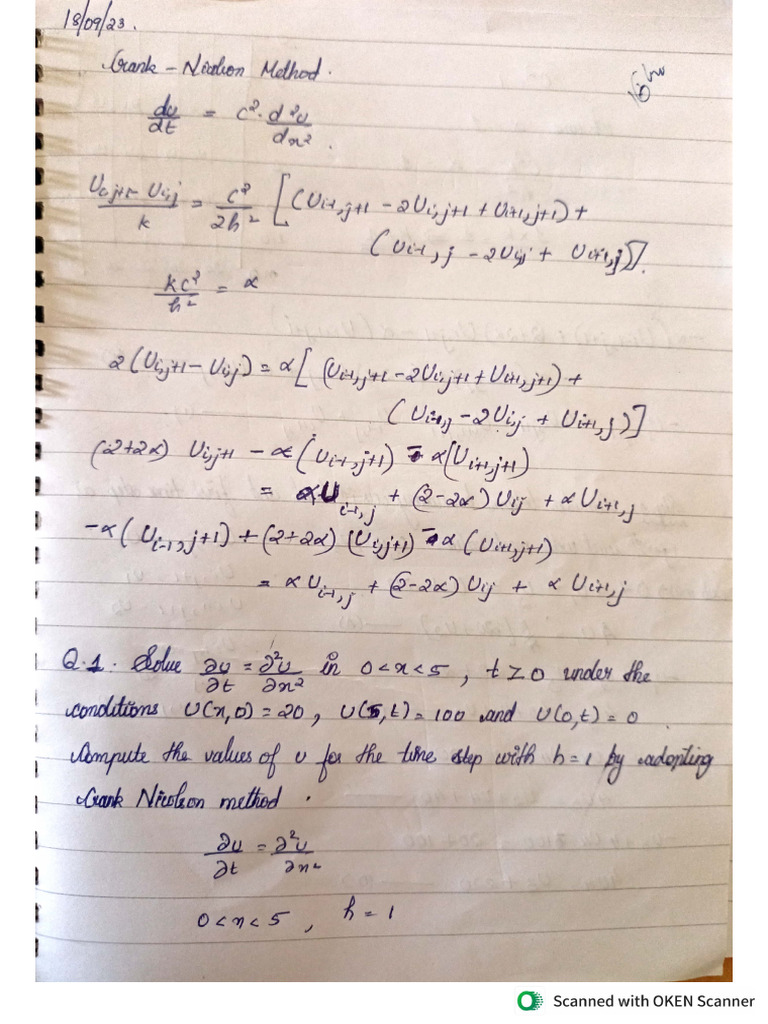 18/09/23.
Crank - Nicolson Method.
du/dt = c². d²u/dx².
(Ui,j+1 - Ui,j)/k = c²/2h² [(Ui-1,j+1 - 2Ui,j+1 + Ui+1,j+1) +
(Ui-1,j - 2Uij + Ui+1,j)].
kc²/h² = α
2(Ui,j+1 - Ui,j) = α[(Ui-1,j+1 - 2Ui,j+1 + Ui+1,j+1) +
(Ui-1,j - 2Ui,j + Ui+1,j)]
(2+2α) Ui,j+1 - α(Ui-1,j+1) - α(Ui+1,j+1)
= αUi-1,j + (2-2α)Uij + αUi+1,j
-α(Ui-1,j+1) + (2+2α)(Ui,j+1) - α(Ui+1,j+1)
= αUi-1,j + (2-2α)Uij + αUi+1,j
Q.1. Solve ∂u/∂t = ∂²u/∂x² in 0<x<5, t≥0 under the
conditions U(x,0)=20, U(5,t)=100 and U(0,t)=0
Compute the values of u for the time step with h=1 by adopting
Crank Nicolson method.
∂u/∂t = ∂²u/∂x²
0<x<5, h=1
Scanned with OKEN Scanner